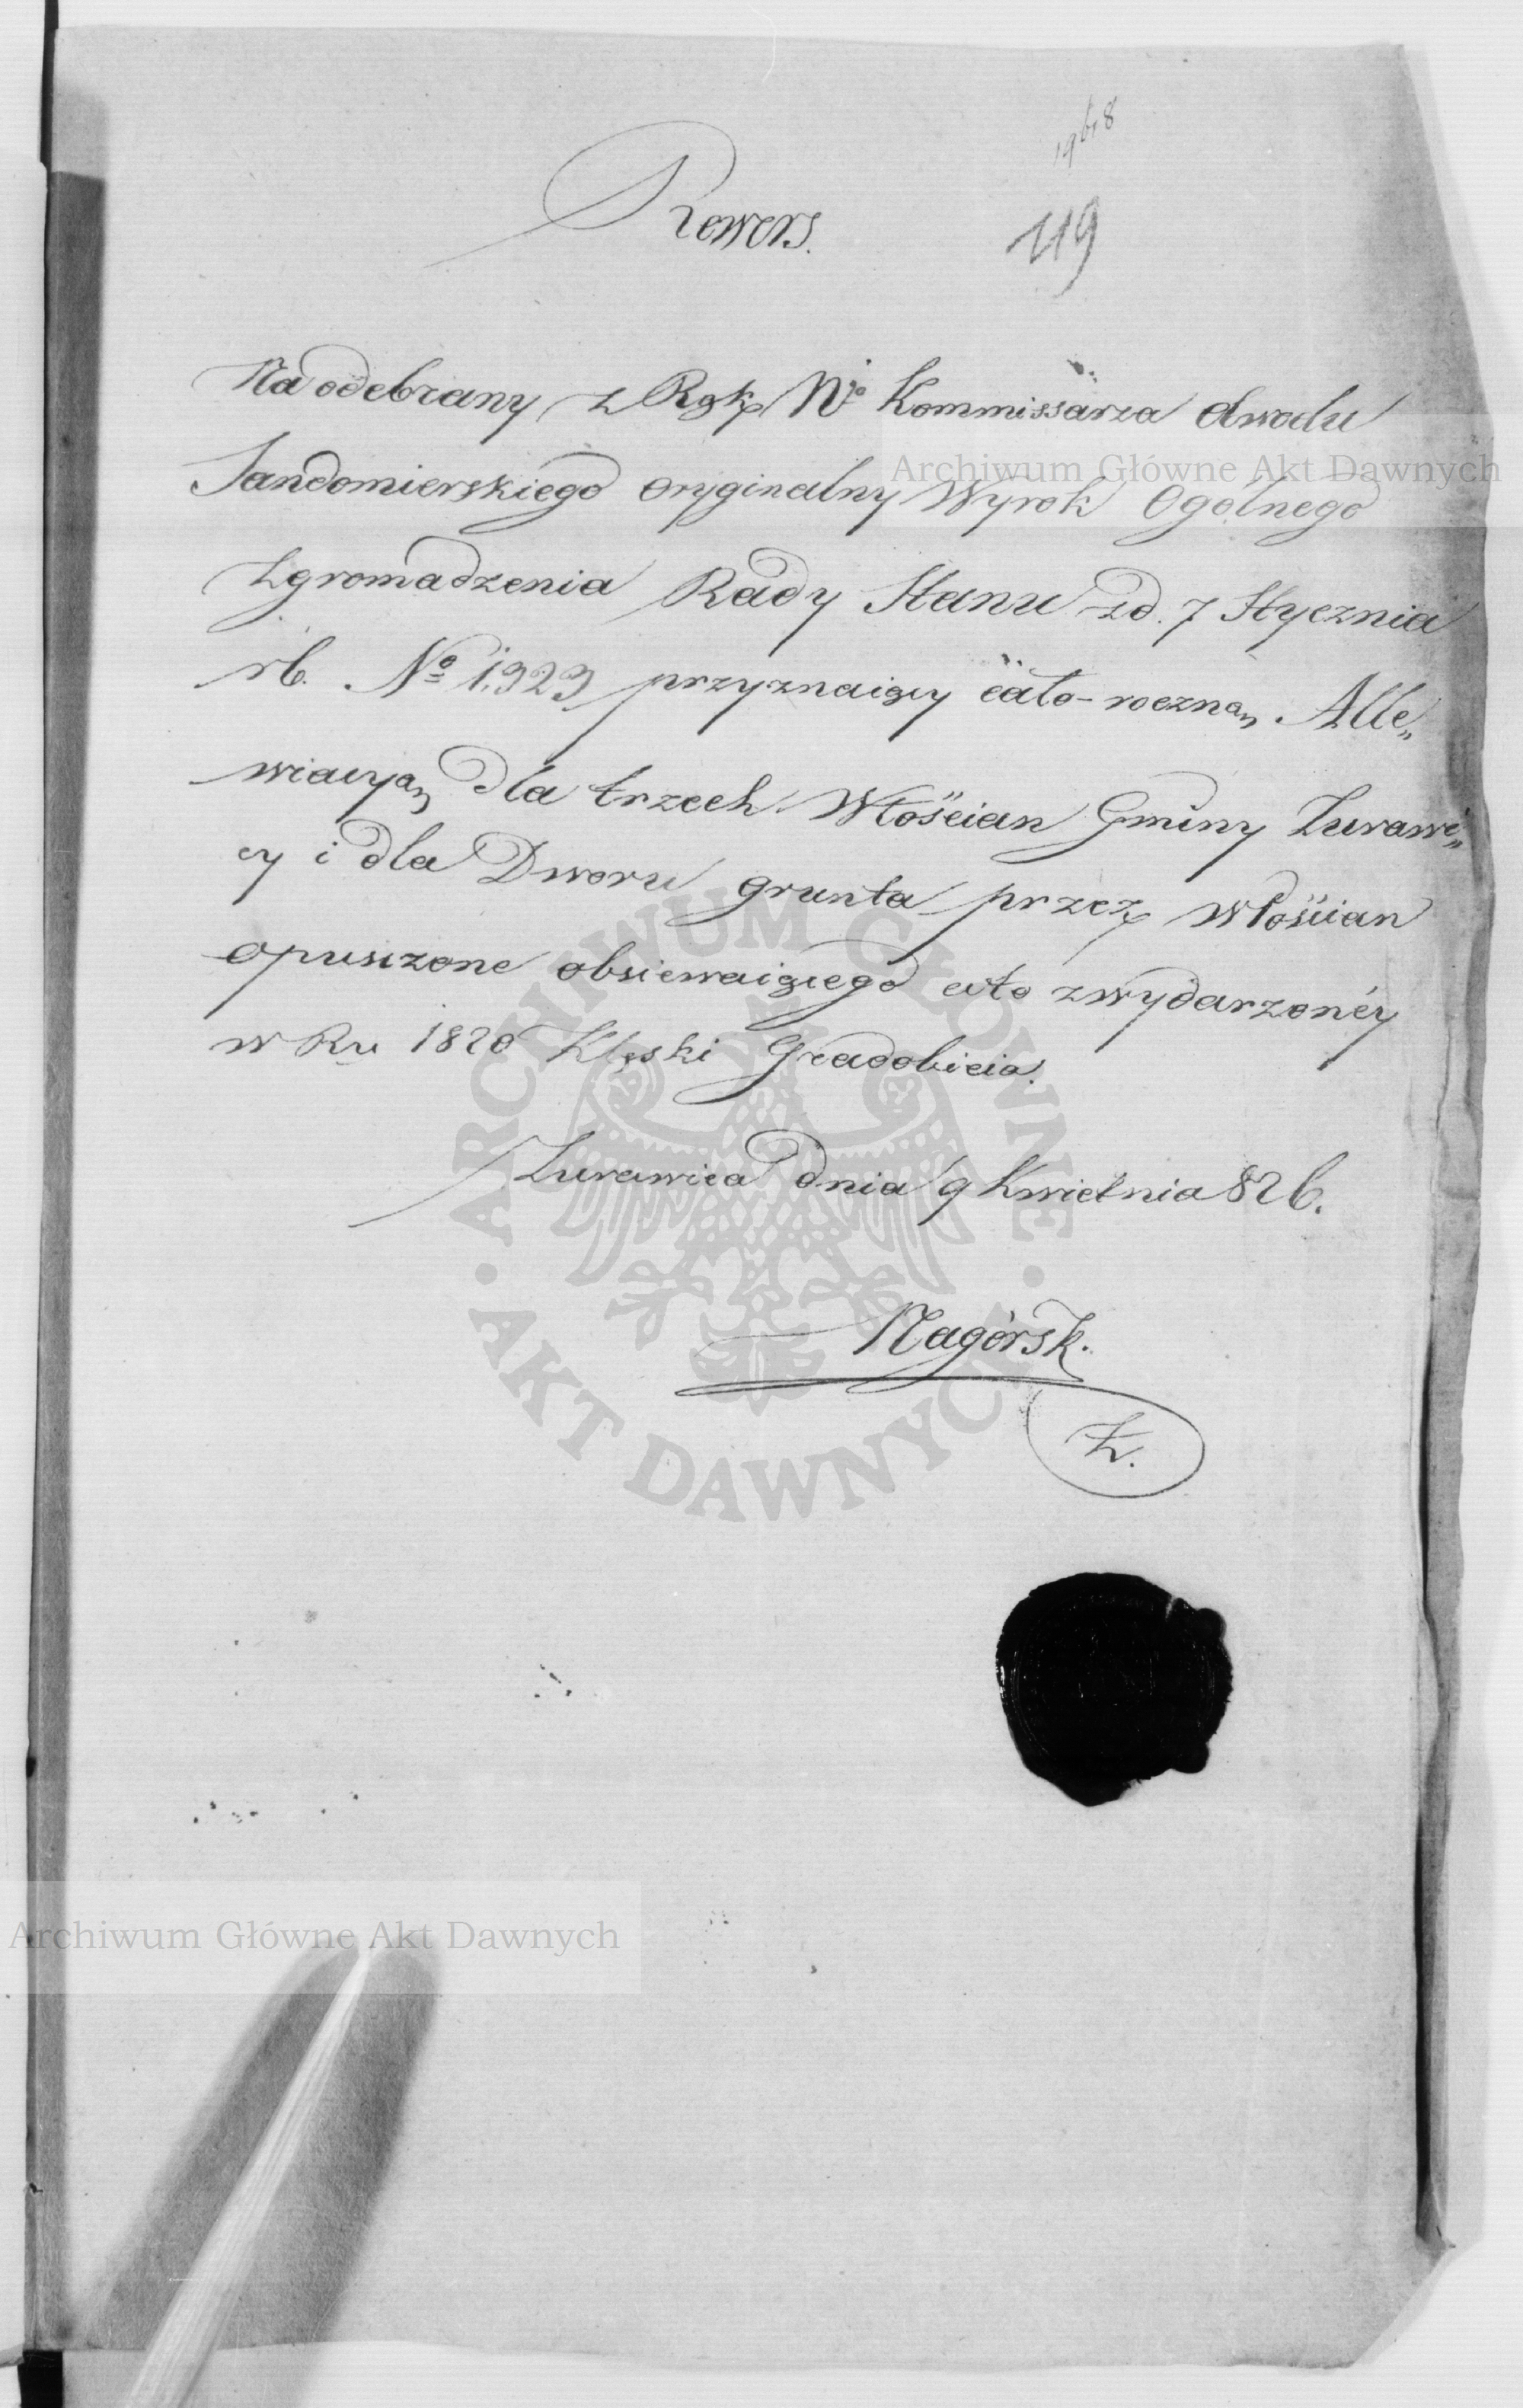 119
Rewers.
Na odebrany z Rąk Wo Kommissarza Obwodu
Archiwum Główne Akt Dawnych
Sandomierskiego oryginalny Wyrok Ogolnego
Zgromadzenia Rady Stanu z d. 7 Stycznia
rb. No 1,929 przyznaiący cáło-roczną Alle„
wiacyą dla trzech Włościan Gminy Zurawi„
cy i dla Dworu grunta przez Włościan
opuszczone obsiewaiącego a to z wydarzonéy
w Ru 1820 Klęski Gradobicia.
Zurawica dnia 9 Kwietnia 826.
Nagórsk.
ARCHIWUM GŁÓWNE
AKT DAWNYCH
Archiwum Główne Akt Dawnych